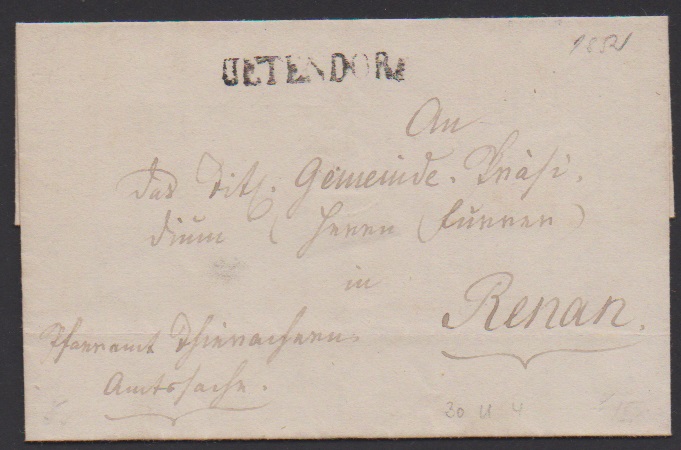 1851
UETENDORF
An
das Titl. Gemeinde-Präsi-
dium (Herrn Furrer)
in
Renan.
Pfarramt Thierachern.
Amtssache.
20 U 4